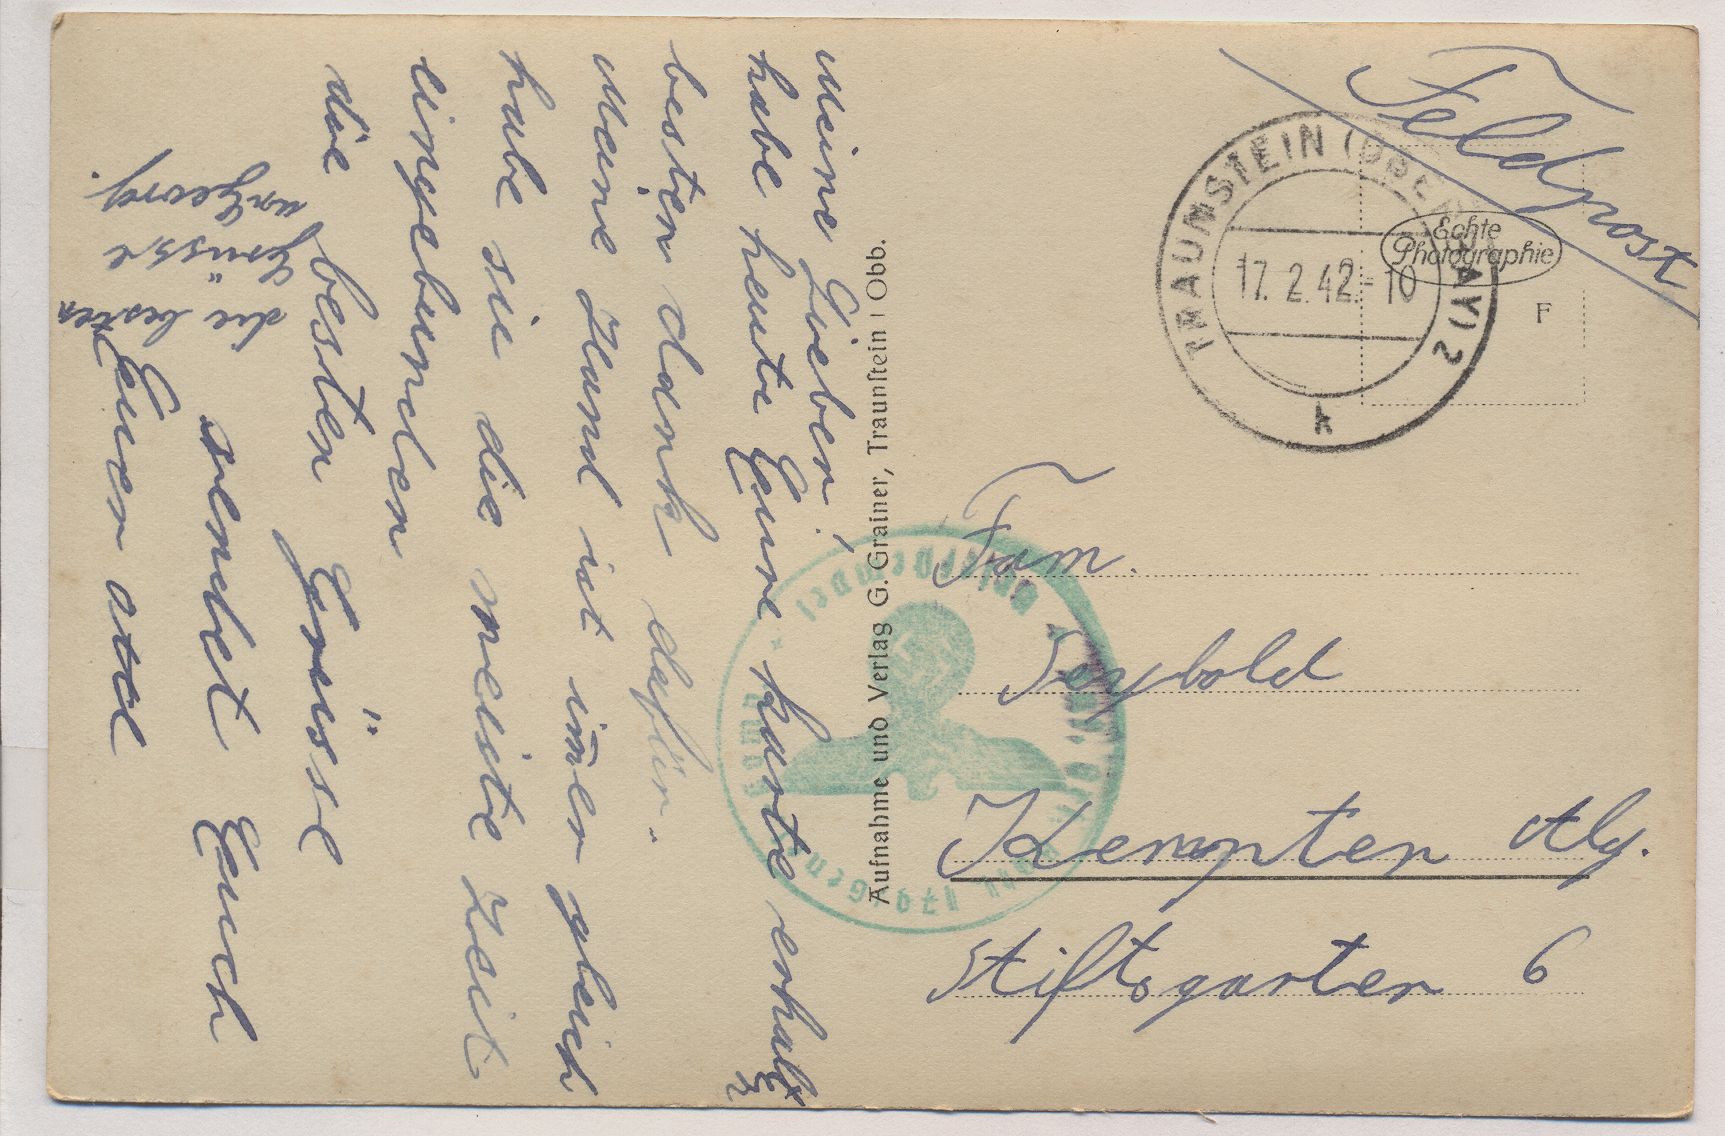 Feldpost
TRAUNSTEIN (OBERBAY) 2
17. 2. 42 - 10
k
Echte
Photographie
F
Fam.
Seybold
Kempten Alg.
Stiftsgarten 6
Aufnahme und Verlag G. Grainer, Traunstein i Obb.
Meine Lieben,
habe heute Eure karte erhalt
besten dank dafür.
Meine Hand ist im̄er gleich
habe sie die meiste Zeit
eingebunden
die besten Grüsse
sendet Euch
Euer
die besten
Grüsse
Georg.